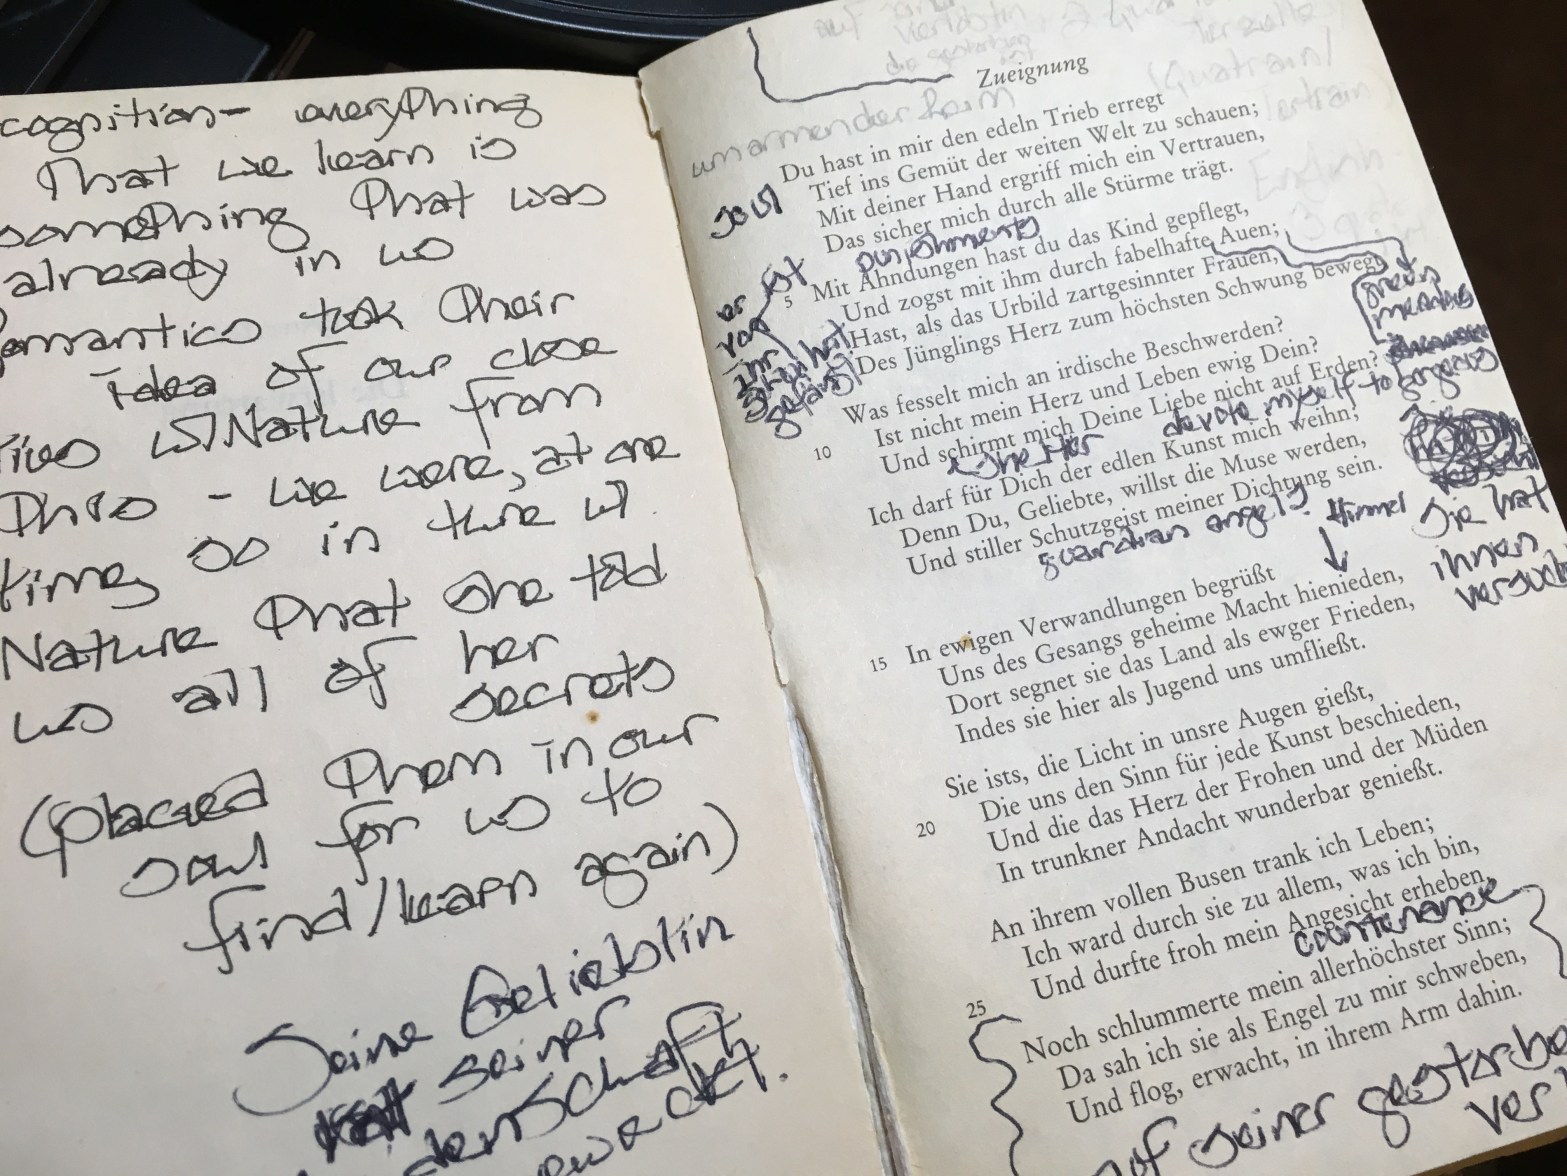 cognition - everything
that we learn is
something that was
already in us
omantics took their
idea of our close
ties w/ Nature from
this - we were, at one
time, so in tune w/
Nature that she told
us all of her
secrets
(placed them in our
soul for us to
find/learn again)
Seine Geliebtin
hat seiner
denschaft
eweckt.
umarmender Reim
Zueignung
Du hast in mir den edeln Trieb erregt
Tief ins Gemüt der weiten Welt zu schauen;
Mit deiner Hand ergriff mich ein Vertrauen,
Das sicher mich durch alle Stürme trägt.
punishments
5 Mit Ahndungen hast du das Kind gepflegt,
Und zogst mit ihm durch fabelhafte Auen;
Hast, als das Urbild zartgesinnter Frauen,
Des Jünglings Herz zum höchsten Schwung bewegt.
er ist
von
ihr
gefängt
green
meadows
Was fesselt mich an irdische Beschwerden?
10 Ist nicht mein Herz und Leben ewig Dein?
Und schirmt mich Deine Liebe nicht auf Erden?
shelter
devote myself to
Ich darf für Dich der edlen Kunst mich weihn;
Denn Du, Geliebte, willst die Muse werden,
Und stiller Schutzgeist meiner Dichtung sein.
guardian angel?
Himmel
Sie hat
ihnen
versuch
In ewigen Verwandlungen begrüßt
15 Uns des Gesangs geheime Macht hienieden,
Dort segnet sie das Land als ewger Frieden,
Indes sie hier als Jugend uns umfließt.
Sie ists, die Licht in unsre Augen gießt,
Die uns den Sinn für jede Kunst beschieden,
20 Und die das Herz der Frohen und der Müden
In trunkner Andacht wunderbar genießt.
An ihrem vollen Busen trank ich Leben;
Ich ward durch sie zu allem, was ich bin,
Und durfte froh mein Angesicht erheben,
countenance
25 Noch schlummerte mein allerhöchster Sinn;
Da sah ich sie als Engel zu mir schweben,
Und flog, erwacht, in ihrem Arm dahin.
auf seiner gestorbe
ver